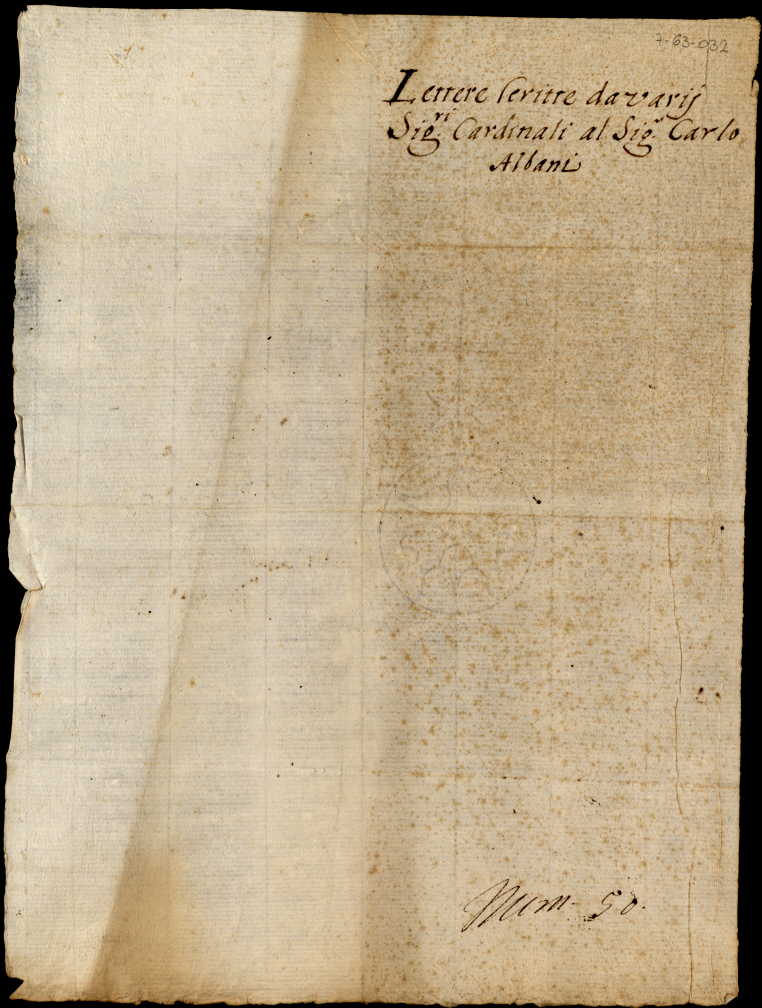 7-63-032
Lettere scritte da varij
Sig.ri Cardinali al Sig.r Carlo
Albani
Num. 50.